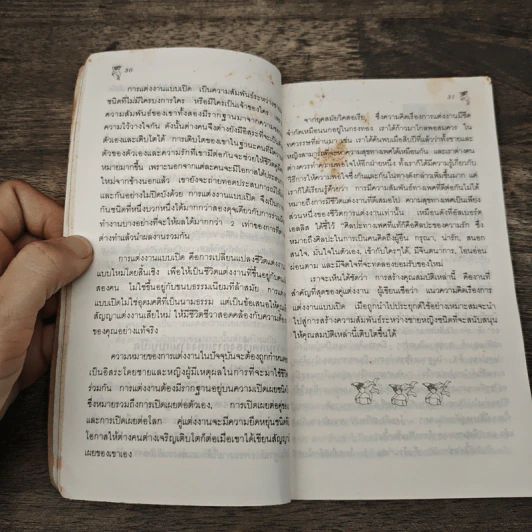 ๓๐
การแต่งงานแบบเปิด เป็นความสัมพันธ์ระหว่าง
ชนิดที่ไม่มีใครบงการใคร หรือมีใครเป็นเจ้าของใคร
ความสัมพันธ์ของเขาทั้งสองมีรากฐานมาจากความ
ความไว้วางใจกัน ดังนั้นต่างคนจึงต่างยังมีอิสระที่จะเป็น
ตัวเองและเติบโตได้ การเติบโตของเขาในฐานะคนที่
ตัวของตัวเองและความรักที่เขามีต่อกันจะช่วยให้ชีวิต
หมายมากขึ้น เพราะนอกจากแต่ละคนจะมีโอกาสได้
ใหม่จากข้างนอกแล้ว เขายังจะถ่ายทอดประสบการณ์
และกันอย่างไม่ปิดบังด้วย การแต่งงานแบบเปิด จึงเป็น
กันชนิดที่หนึ่งบวกหนึ่งได้มากกว่าสองดุจเดียวกับการ
ทำงานบางอย่างที่จะให้ผลได้มากกว่า 2 เท่าของการที่
ต่างทำแล้วนำผลงานรวมกัน
การแต่งงานแบบเปิด คือการเปลี่ยนแปลงชีวิต
แบบใหม่โดยสิ้นเชิง เพื่อให้เป็นชีวิตแต่งงานที่ขึ้นอยู่กับ
สองคน ไม่ใช่ขึ้นอยู่กับขนบธรรมเนียมที่ล้าสมัย การ
แบบเปิดไม่ใช่อุดมคติที่เป็นนามธรรม แต่เป็นข้อเสนอให้
สัญญาแต่งงานเสียใหม่ ให้มีชีวิตชีวาสอดคล้องกับความ
ของคุณอย่างแท้จริง
ความหมายของการแต่งงานในปัจจุบันจะต้องถูกกำหนด
เป็นอิสระโดยชายและหญิงผู้มีเหตุผลในการที่จะมาใช้ชีวิต
ร่วมกัน การแต่งงานต้องมีรากฐานอยู่บนความเปิดเผยชนิด
ซึ่งหมายรวมถึงการเปิดเผยต่อตัวเอง, การเปิดเผยต่อคู่
และการเปิดเผยต่อโลก คู่แต่งงานจะมีความยืดหยุ่นชนิด
โอกาสให้ต่างคนต่างเจริญเติบโตก็ต่อเมื่อเขาได้เขียนสัญญา
เผยของเขาเอง
๓๑
จากยุคสมัยวิคตอเรีย, ซึ่งความคิดเรื่องการแต่งงานมีขีด
จำกัดเหมือนนกอยู่ในกรงทอง เราได้ก้าวมาไกลพอสมควร ใน
ทศวรรษที่ผ่านมา เช่น เราได้ค้นพบเมื่อสิบปีที่แล้วว่าทั้งชายและ
หญิงสามารถที่จะหาความสุขทางเพศได้เหมือนกัน และเราต่างคน
ต่างควรทำความพอใจให้อีกฝ่ายหนึ่ง ทั้งเราก็ได้มีความรู้เกี่ยวกับ
วิธีการให้ความพอใจซึ่งกันและกันในทางดังกล่าวเพิ่มขึ้นมาก แต่
เราก็ได้เรียนรู้ด้วยว่า การมีความสัมพันธ์ทางเพศที่ดีต่อกันไม่ได้
หมายถึงการมีชีวิตแต่งงานที่ดีเสมอไป ความสุขทางเพศเป็นเพียง
ส่วนหนึ่งของชีวิตการแต่งงานเท่านั้น เหมือนดังที่อัลเบอร์ต
เอลลิส ได้ชี้ไว้ "ศิลปะทางเพศที่แท้ก็คือศิลปะของความรัก ซึ่ง
หมายถึงศิลปะในการเป็นคนคิดถึงผู้อื่น กรุณา, น่ารัก, สนอก
สนใจ, มั่นใจในตัวเอง, เข้ากับใครๆได้, มีจินตนาการ, โอนอ่อน
ผ่อนตาม และมีจิตใจที่จะทดลองยอมรับของใหม่
เราจะเห็นได้ชัดว่า การสร้างคุณสมบัติเหล่านี้ คืองานที่
สำคัญที่สุดของคู่แต่งงาน ผู้เขียนเชื่อว่า แนวความคิดเรื่องการ
แต่งงานแบบเปิด เมื่อถูกนำไปประยุกต์ใช้อย่างเหมาะสมจะนำ
ไปสู่การสร้างความสัมพันธ์ระหว่างชายหญิงชนิดที่จะสนับสนุน
ให้คุณสมบัติเหล่านี้เติบโตขึ้นได้